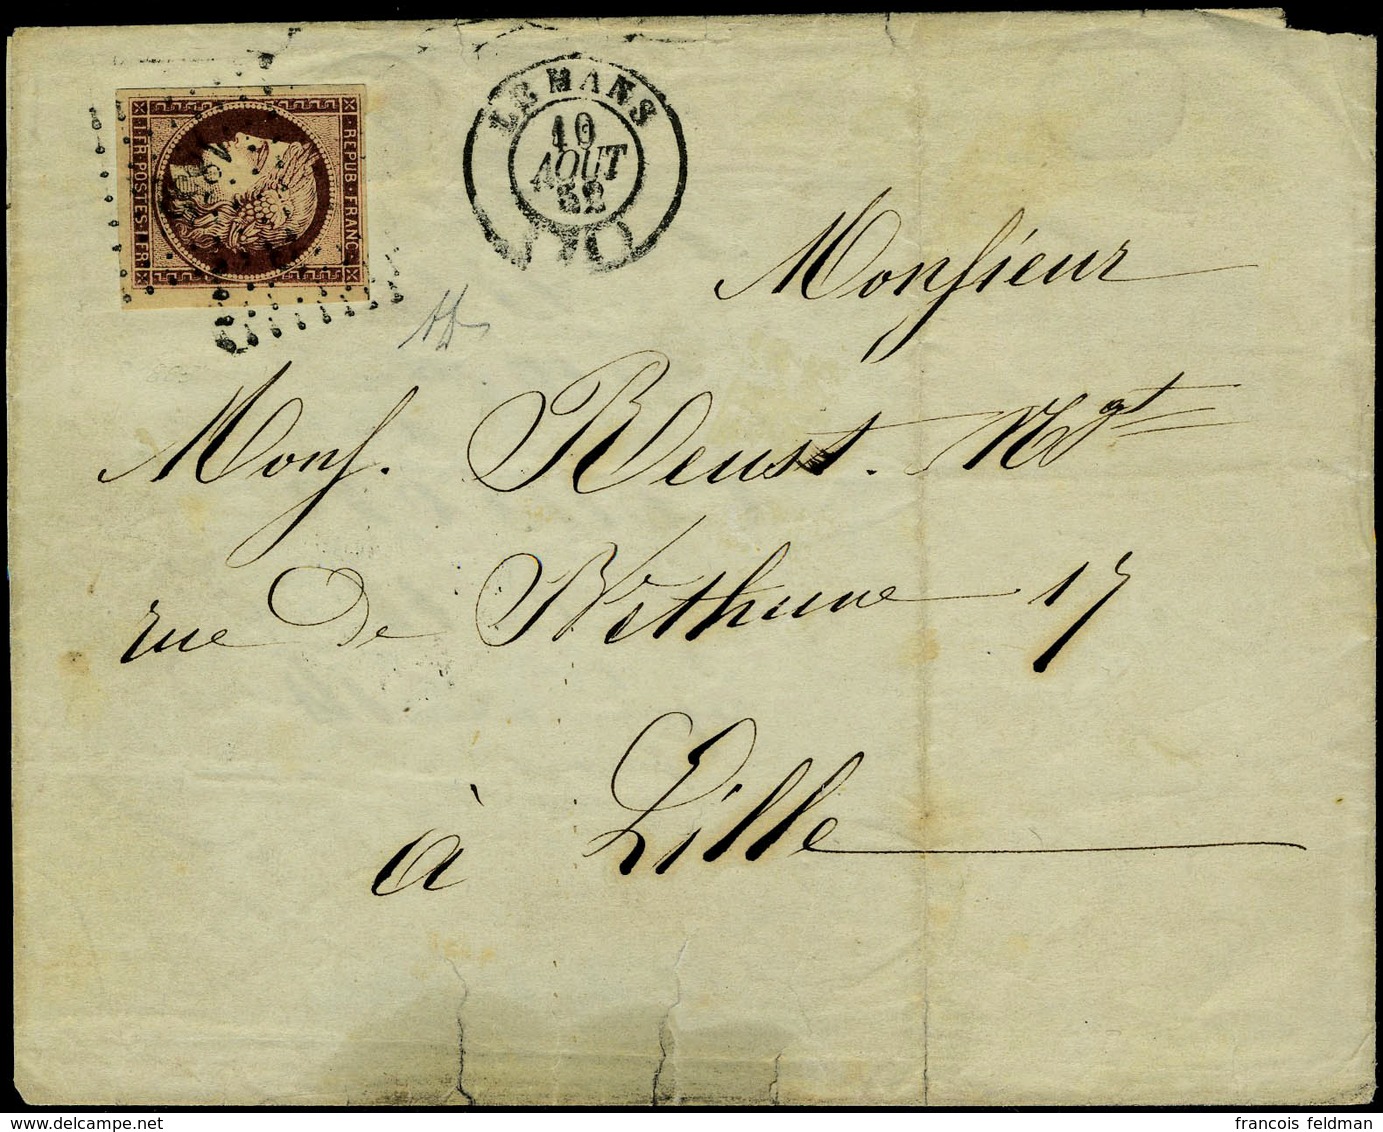 REPUB·FRANC·
1FR·POSTES·1FR
LE MANS
10
AOUT
52
(70)
Monsieur
Mons. Reust. Ngt
rue de Bethune 17
à Lille
www.delcampe.net
francois feldman